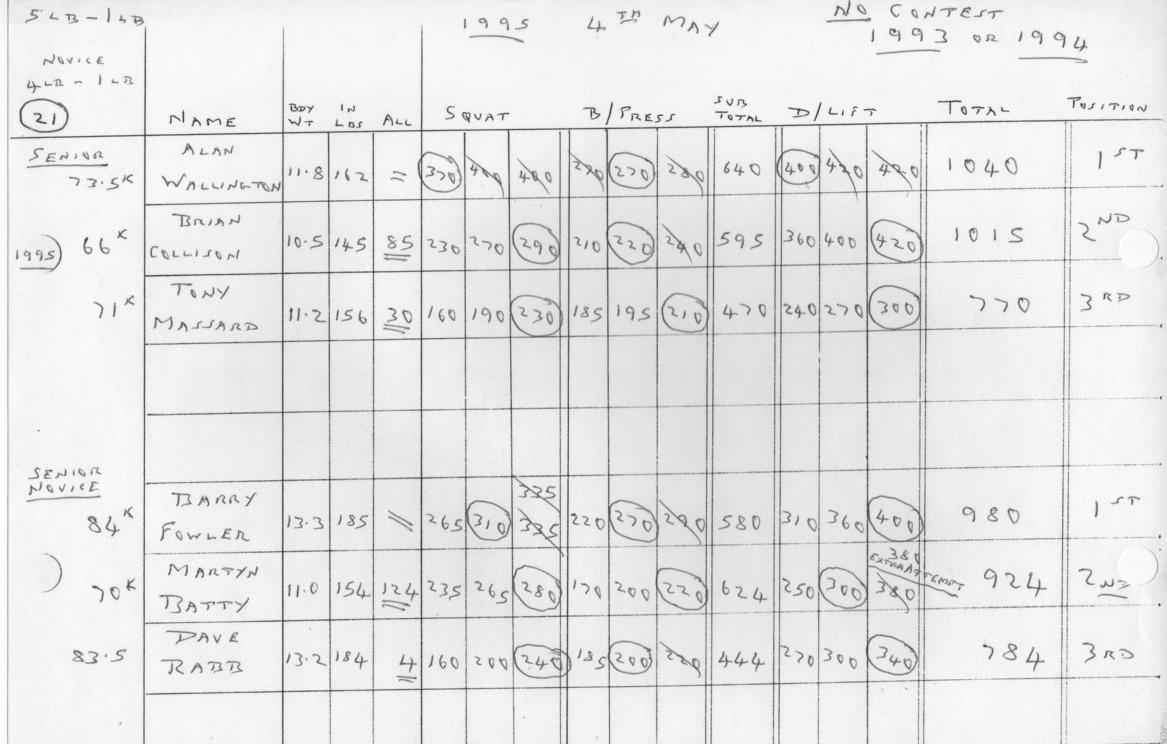 5 LB - 1 LB 1995 4TH MAY NO CONTEST
1993 OR 1994
NOVICE
4 LB - 1 LB
21 NAME BDY WT IN LBS ALL SQUAT B/PRESS SUB TOTAL D/LIFT TOTAL POSITION
SENIOR
73.5K ALAN WALLINGTON 11.8 162 = 370 400 400 270 270 280 640 400 420 420 1040 1ST
1995 66K BRIAN COLLISON 10.5 145 85 230 270 290 210 220 240 595 360 400 420 1015 2ND
71K TONY MASSARD 11.2 156 30 160 190 230 185 195 210 470 240 270 300 770 3RD
SENIOR
NOVICE
335
84K BARRY FOWLER 13.3 185 = 265 310 335 220 270 290 580 310 360 400 980 1ST
380
EXTRA ATTEMPT
70K MARTYN BATTY 11.0 154 124 235 265 280 170 200 220 624 250 300 380 924 2ND
83.5 DAVE RABB 13.2 184 4 160 200 240 185 200 220 444 270 300 340 784 3RD